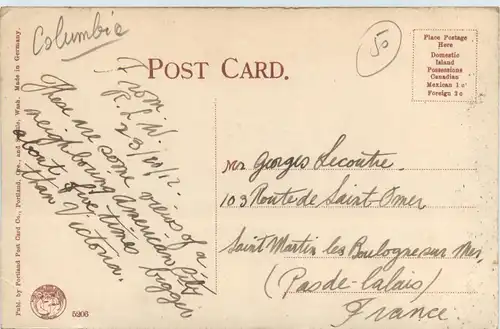 Columbia
50
POST CARD.
Place Postage
Here
Domestic
Island
Possessions
Canadian
Mexican 1c
Foreign 2c
From W.
23/10/12.
These are some views of a
neighbouring American city
about five times bigger
than Victoria.
Mr Georges Lecoutre
103 Route de Saint-Omer
Saint Martin les Boulogne sur Mer
(Pas-de-Calais)
France.
Publ. by Portland Post Card Co., Portland, Ore., and Seattle, Wash. Made in Germany.
5208